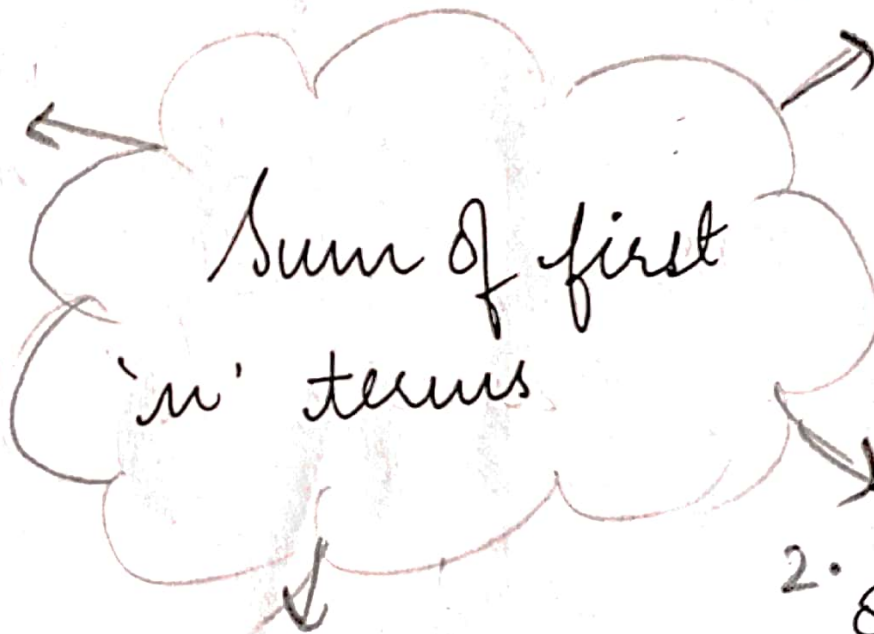 Sum of first
'n' terms
2.